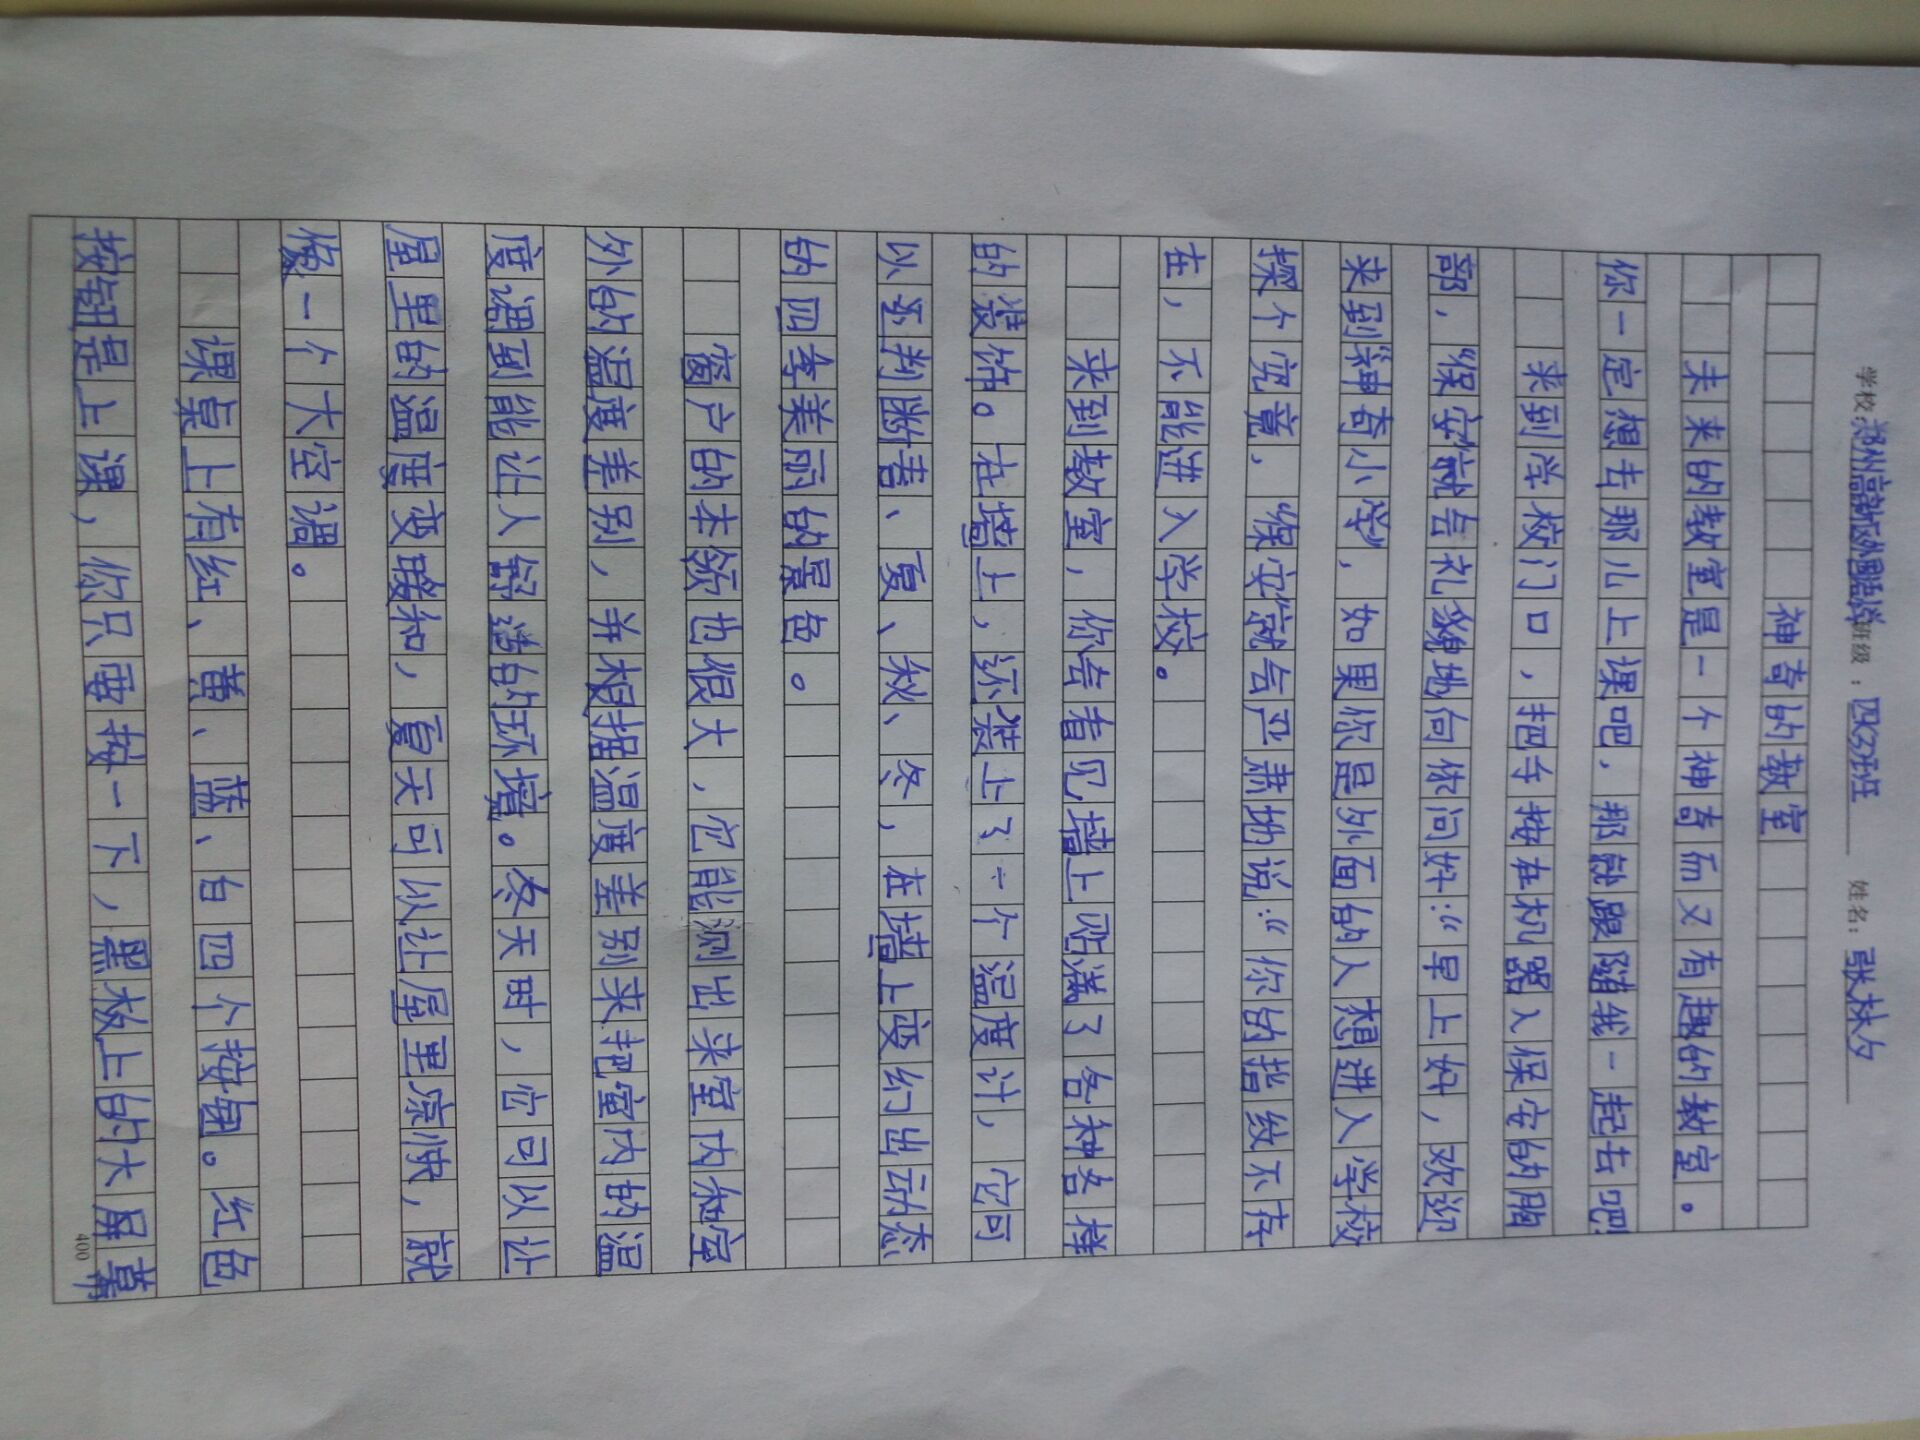 学校：郑州高新区外国语小学 班级：四(3)班 姓名：张林夕
神奇的教室
未来的教室是一个神奇而又有趣的教室。
你一定想去那儿上课吧，那就跟随我一起去吧
来到学校门口，把手按在机器人保安的胸
部，“保安”就会礼貌地向你问好：“早上好，欢迎
来到神奇小学”，如果你是外面的人想进入学校
探个究竟，“保安”就会严肃地说：“你的指纹不存
在，不能进入学校。
来到教室，你会看见墙上贴满了各种各样
的装饰。在墙上，还装上了一个温度计，它可
以来判断春、夏、秋、冬，在墙上变幻出动态
的四季美丽的景色。
窗户的本领也很大，它能测出来室内和室
外的温度差别，并根据温度差别来把室内的温
度调到能让人舒适的环境。冬天时，它可以让
屋里的温度变暖和，夏天可以让屋里凉快，就
像一个大空调。
课桌上有红、黄、蓝、白四个按钮。红色
按钮是上课，你只要按一下，黑板上的大屏幕
400